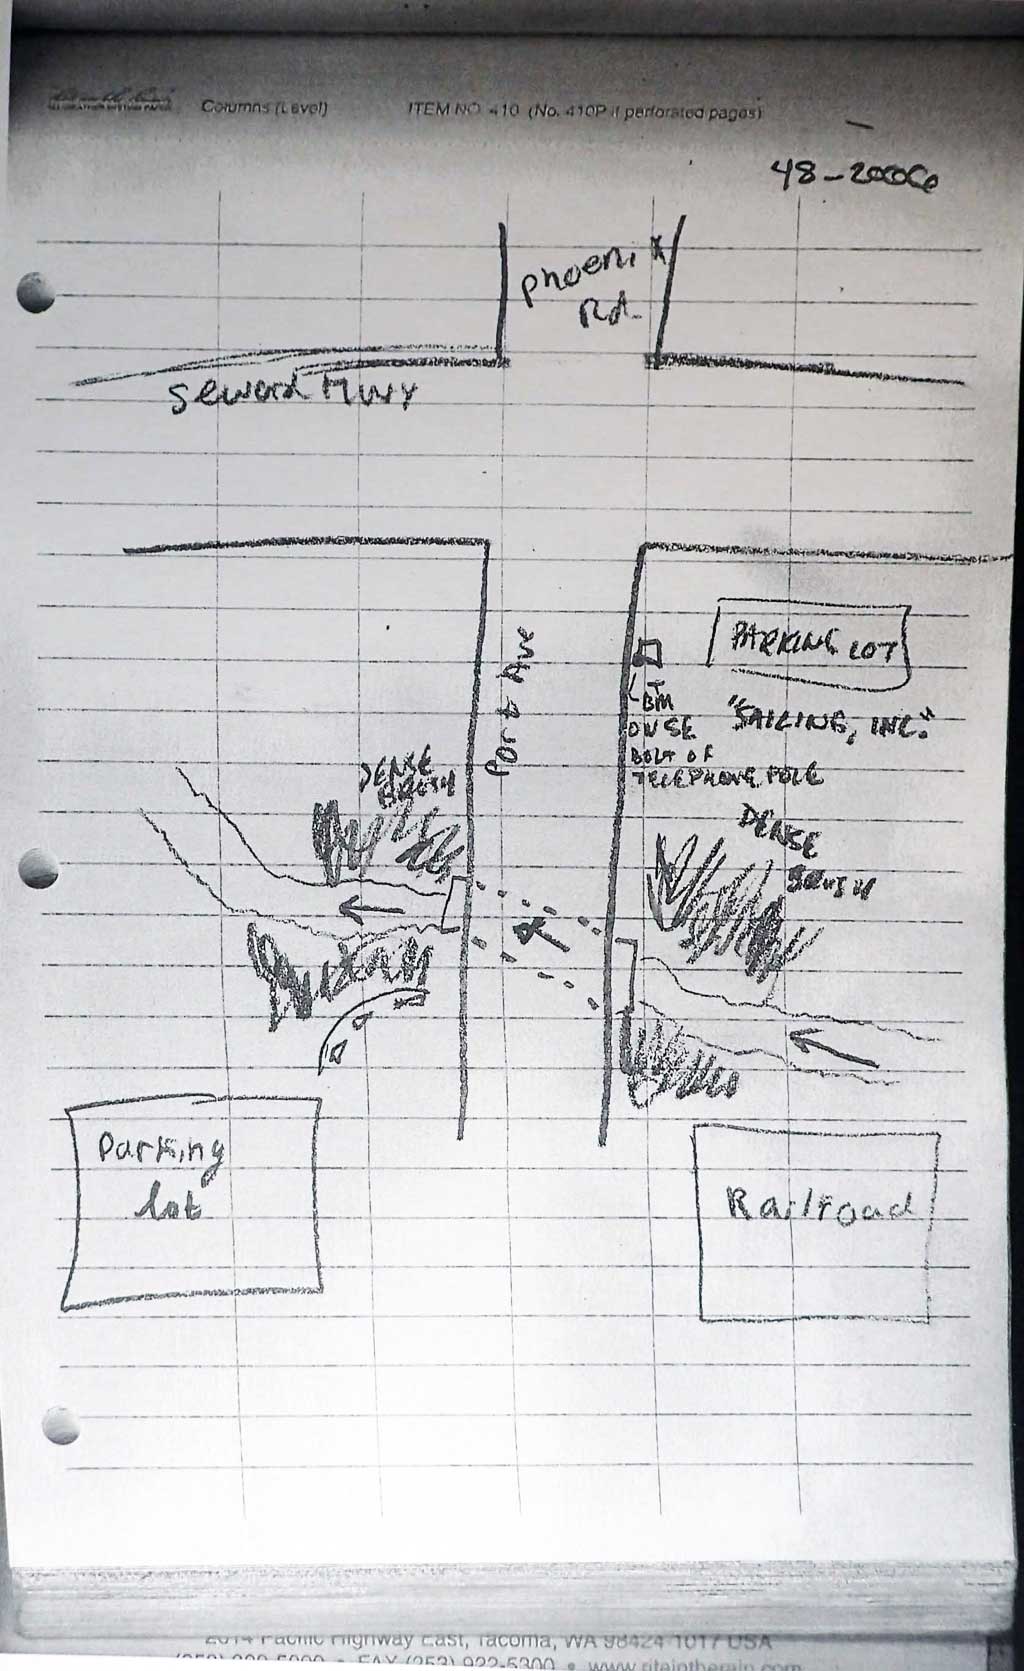 Columns (Level)
ITEM NO. 410 (No. 410P if perforated pages)
48-20006
Phoenix
Rd.
Seward Hwy
PARKING LOT
Port Ave
BM
ON SE
BOLT OF
TELEPHONE POLE
"SAILING, INC."
DENSE
BRUSH
DENSE
BRUSH
Parking
lot
Railroad
2014 Pacific Highway East, Tacoma, WA 98424-1017 USA
FAX (253) 922-5300 • www.riteintherain.com